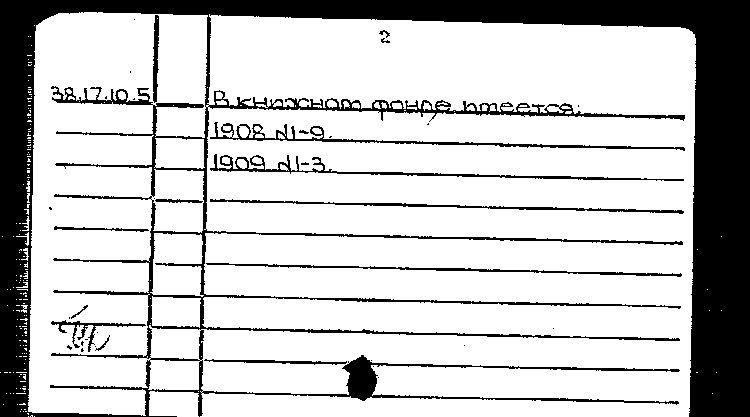 2
38.17.10.5 В книжном фонде имеется:
1908 №1-9.
1909 №1-3.